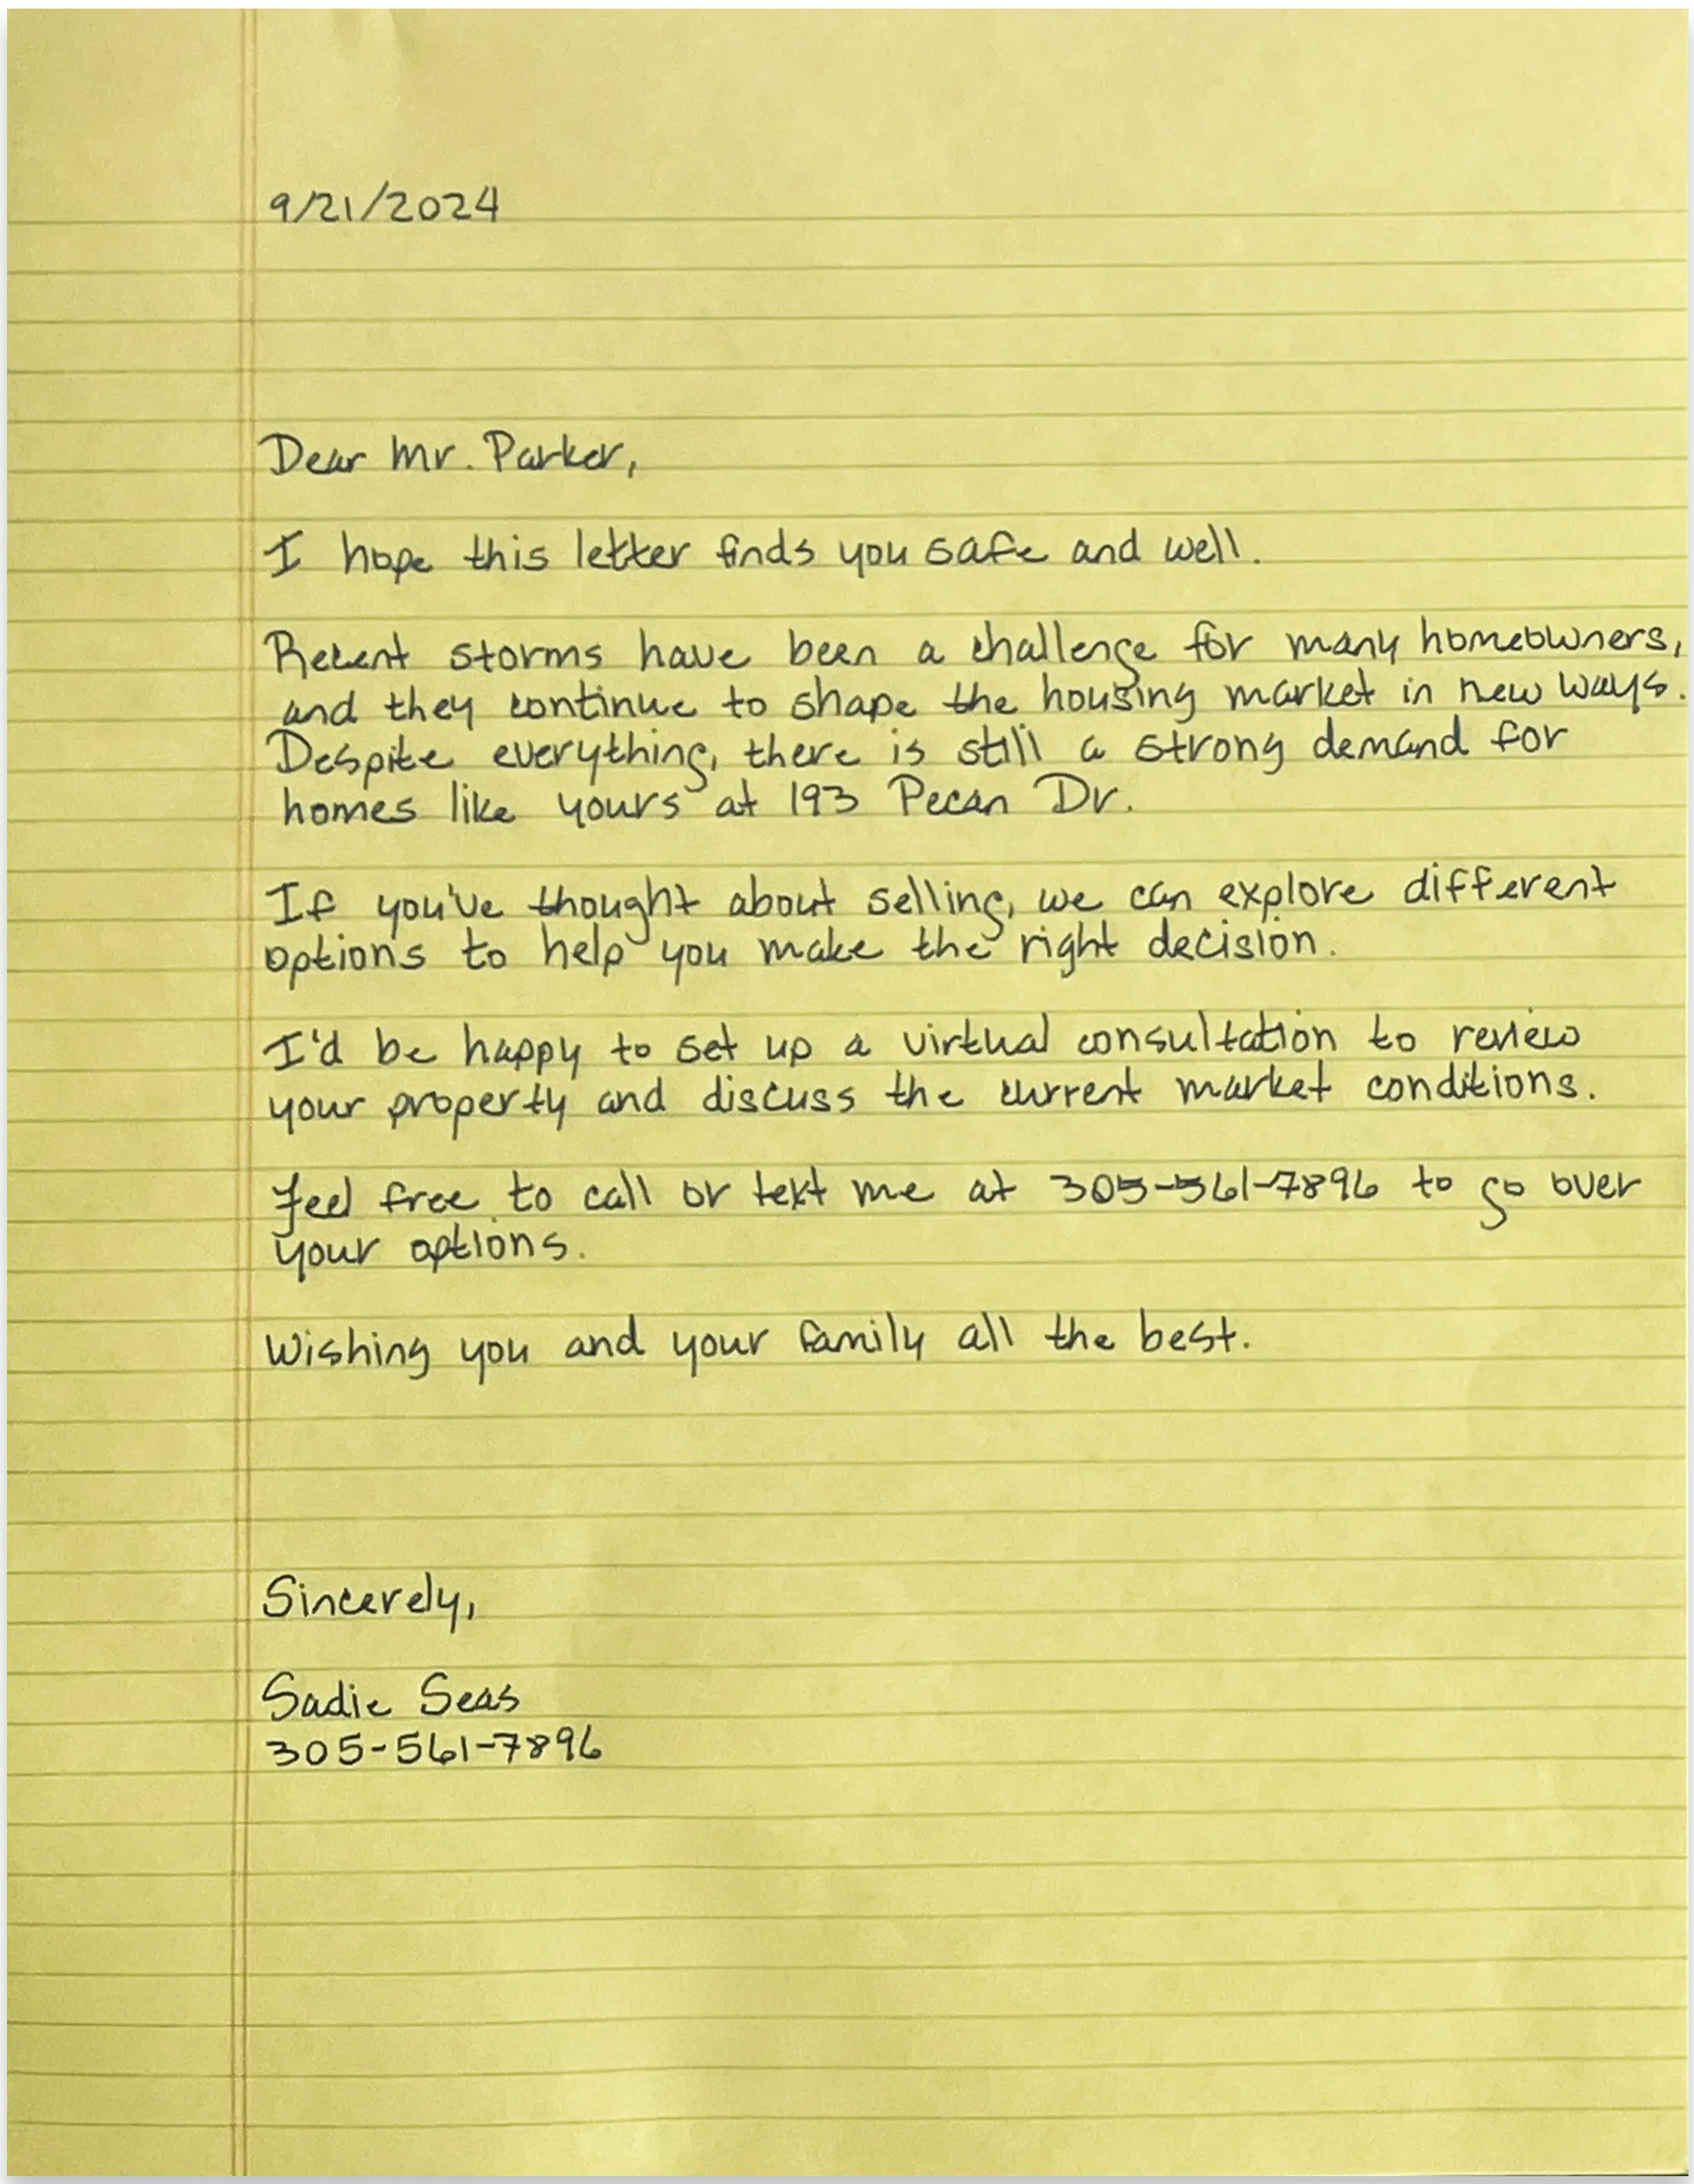 9/21/2024
Dear Mr. Parker,
I hope this letter finds you safe and well.
Recent storms have been a challenge for many homeowners,
and they continue to shape the housing market in new ways.
Despite everything, there is still a strong demand for
homes like yours at 193 Pecan Dr.
If you've thought about selling, we can explore different
options to help you make the right decision.
I'd be happy to set up a virtual consultation to review
your property and discuss the current market conditions.
Feel free to call or text me at 305-561-7896 to go over
your options.
Wishing you and your family all the best.
Sincerely,
Sadie Seas
305-561-7896